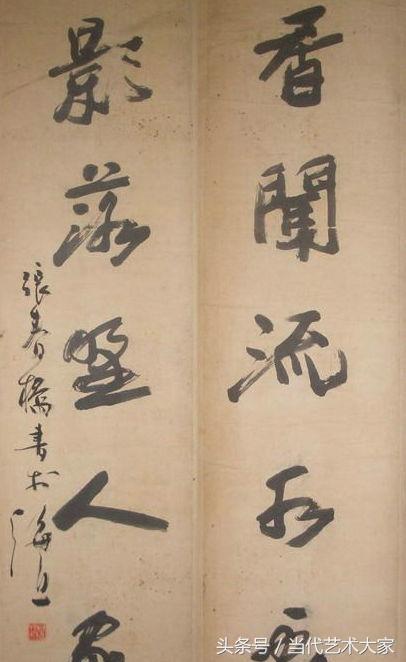 香聞流水處
影落野人家
張春橋書於海上
头条号/当代艺术大家